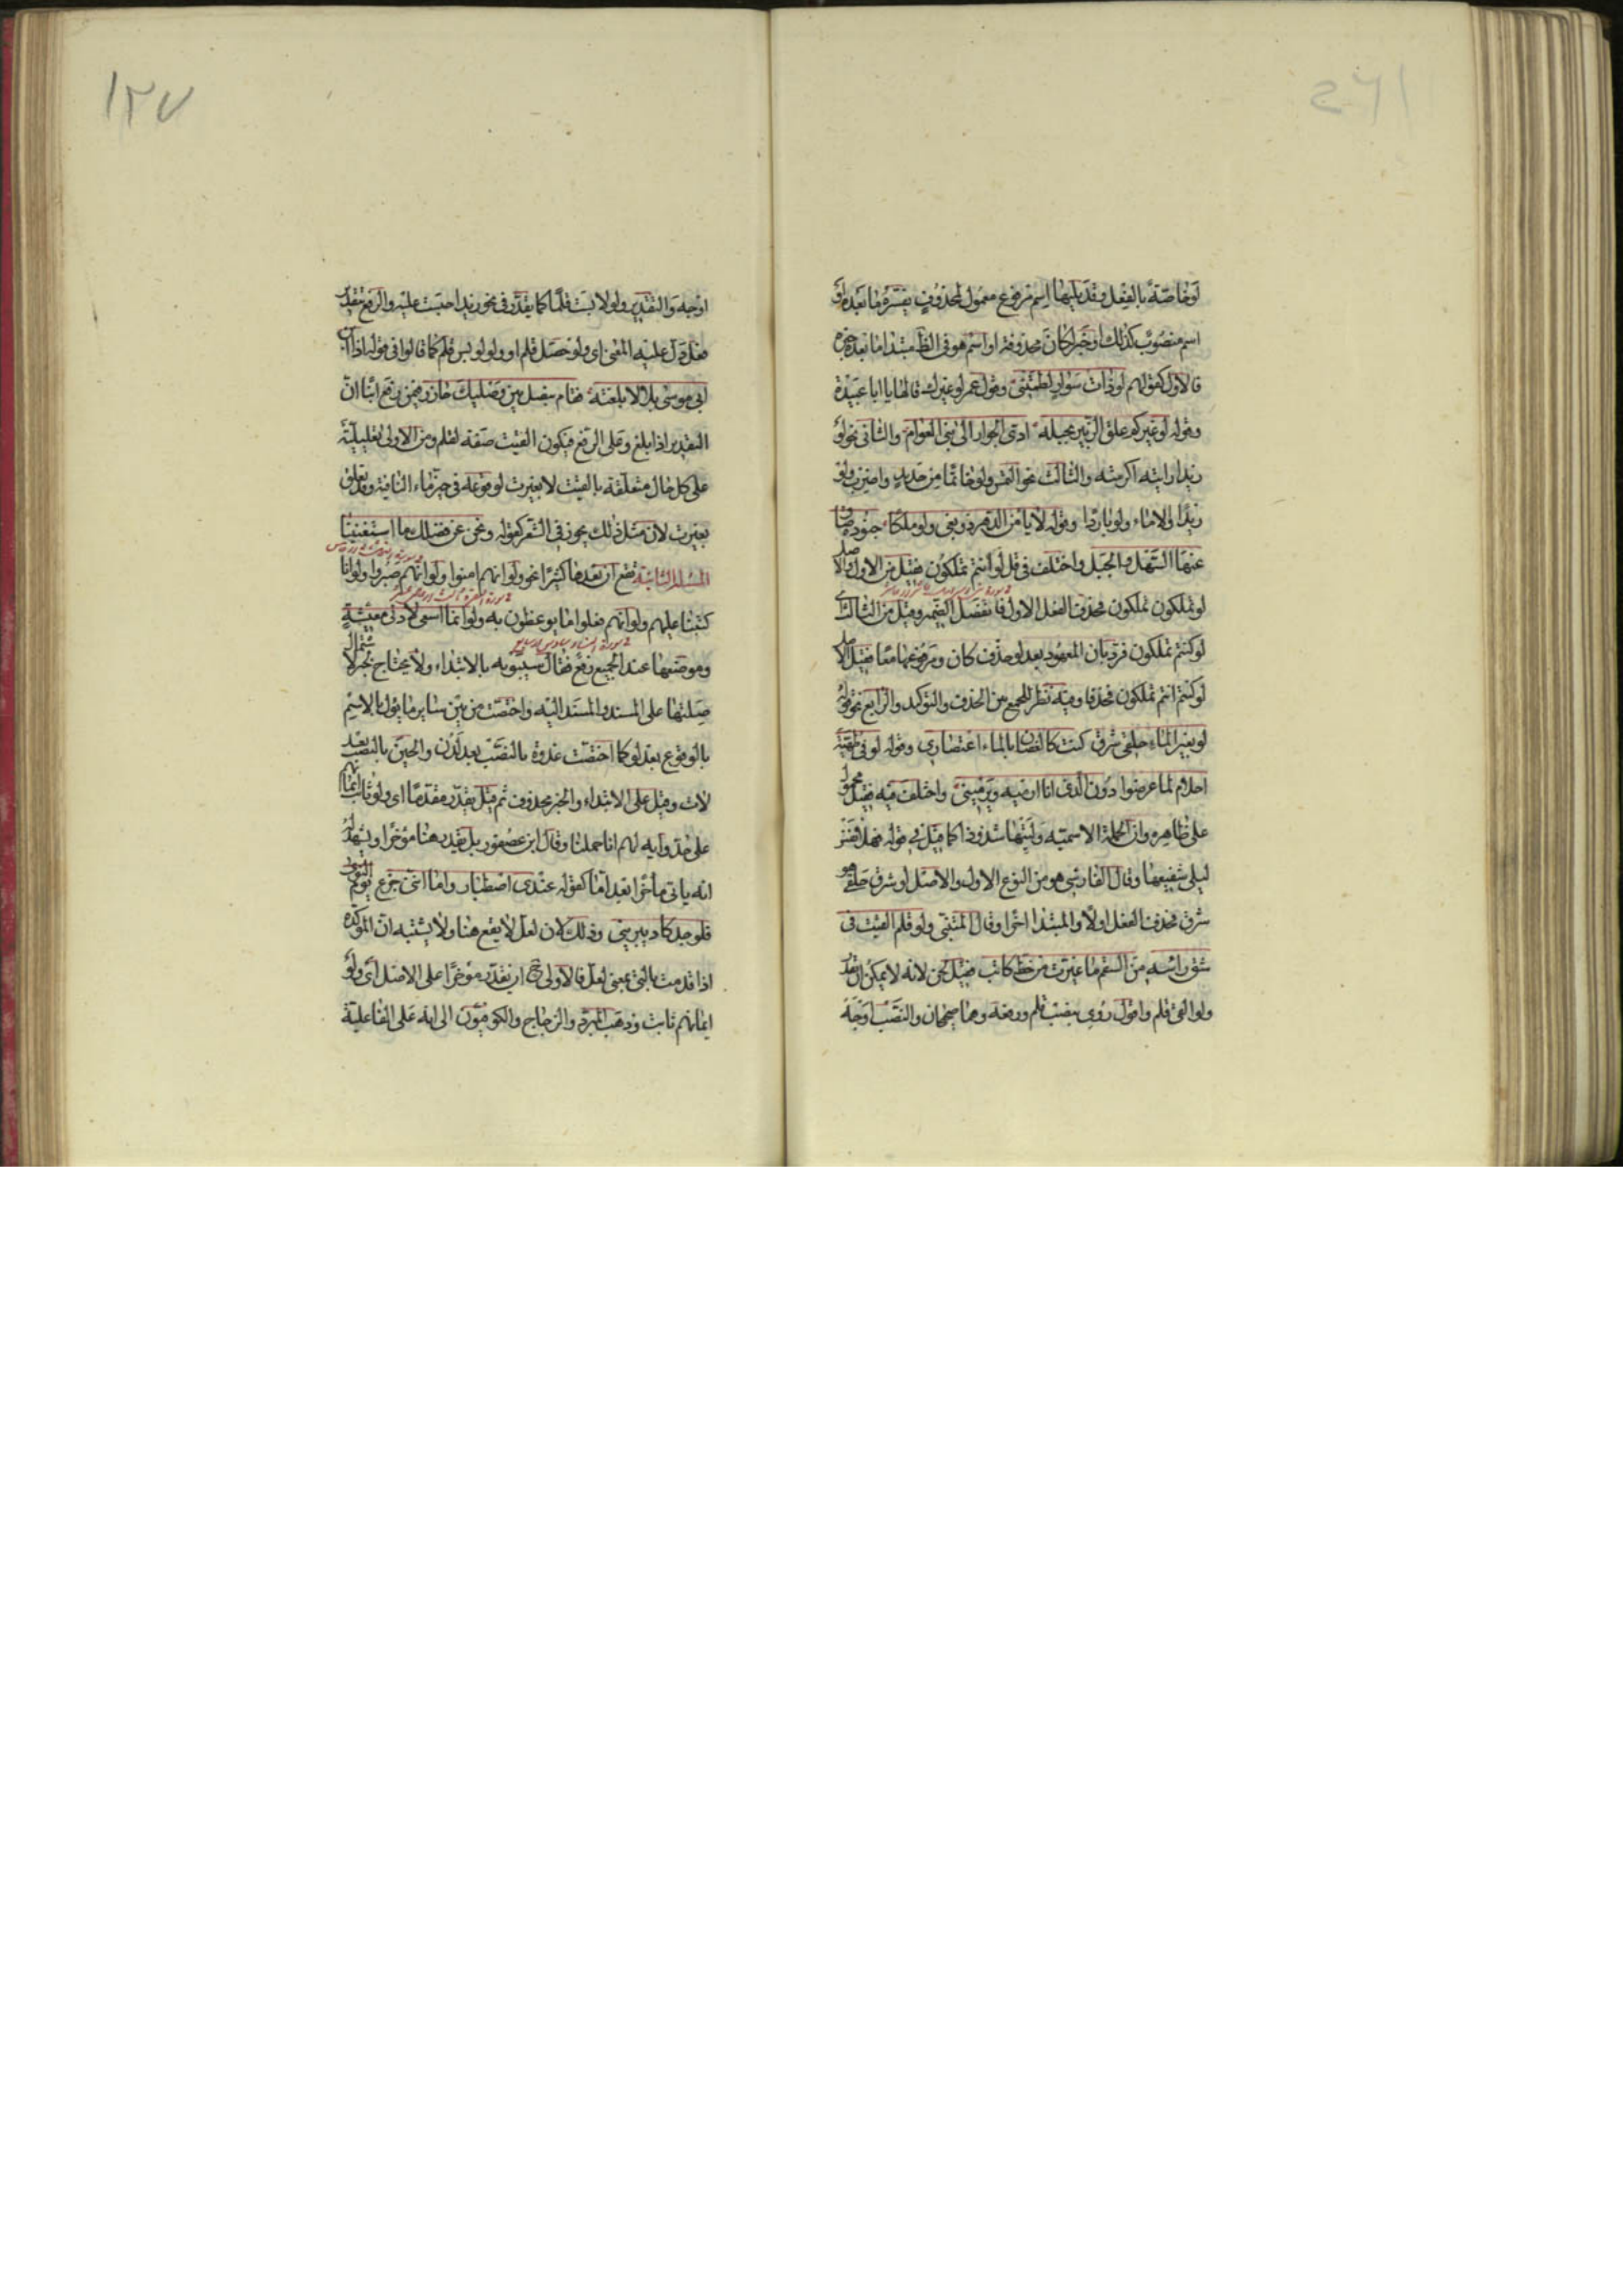 لو خاصّة بالفعل وقد يليها اسم مرفوع معمول لمحذوف يفسّره ما بعده او
اسم منصوب كذلك او خبر لكان محذوفة او اسم هو فى الظ مبتدا ما بعده خبره
فالاول كقولهم لو ذات سوار لطمتنى وقول عمر لو غيرك قالها يا ابا عبيدة
وقوله لو غيركم علق الزبير بحبله ادى الجوار الى بنى العوام والثانى نحو لو
زيدا رايته اكرمته والثالث نحو التمس ولو خاتما من حديد واضرب ولو
زيدا والا ماء ولو باردا وقوله لا يامن الدهر ذو بغى ولو ملكا جنوده ضاق
عنها السهل والجبل واختلف فى قل لو انتم تملكون فقيل من الاول والاصل
لو تملكون تملكون فحذف الفعل الاول فانفصل الضمير وقيل من الثالث اى
لو كنتم تملكون فرد بان المعهود بعد لو حذف كان ومرفوعها معا فقيل الاصل
لو كنتم انتم تملكون فحذفا وفيه نظر للجمع بين الحذف والتوكيد والرابع نحو قوله
لو بغير الماء حلقى شرق كنت كالغصان بالماء اعتصارى وقوله لو فى طهية
احلام لما عرضوا دون الذى انا ارميه ويرمينى واختلف فيه فقيل محمول
على ظاهره وان الجملة الاسمية وليتها شذوذا كما قيل فى قوله فهلا نفس
ليلى شفيعها وقال الفارسى هو من النوع الاول والاصل لو شرق حلقى هو
شرق فحذف الفعل اولا والمبتدا اخرا وقال المتنبى ولو قلم القيت فى
شق راسه من السقم ما غيرت من خط كاتب فقيل لحن لانه لا يمكن ان يقدر
ولو القى قلم واقول روى بنصب قلم ورفعه وهما صحيحان والنصب اوجه
اوجه والتقدير ولو لابست قلما كما يقدر فى نحو زيدا حبست عليه والرفع بتقدير
فعل دل عليه المعنى اى ولو حصل قلم او ولو لوبس قلم كما قالوا فى قوله اذا ابن
ابى موسى بلالا بلغته فقام بفصل بين وصليك جازر فيمن رفع ابنا ان
التقدير اذا بلغ وعلى الرفع فيكون القيت صفة لقلم ومن الاولى تعليلية
على كل حال متعلقة بالقيت لا بغيرت لوقوعه فى حيز ماء النافية وقد تعلق
بغيرت لان مثل ذلك يجوز فى الشعر كقوله ونحن عن فضلك ما استغنينا
المسئلة الثانية تقع ان بعدها كثيرا نحو ولو انهم امنوا ولو انهم صبروا ولو انا
كتبنا عليهم ولو انهم فعلوا ما يوعظون به ولو انما اسعى لادنى معيشة
وموضعها عند الجميع رفع فقال سيبويه بالابتداء ولا يحتاج لخبر لاشتمال
صلتها على المسند والمسند اليه واختصت من بين ساير ما يؤل بالاسم
بالوقوع بعد لو كما اختصت غدوة بالنصب بعد لدن والحين بالنصب بعد
لات وقيل على الابتداء والخبر محذوف ثم قيل يقدر مقدما اى ولو ثابت ايمانهم
على حد واية لهم انا حملنا وقال ابن عصفور بل يقدر هنا مؤخرا ويشهد له
انه ياتى مأخرا بعد اما كقوله عندى اصطبار واما اننى جزع يوم النوى
فلوجد كاد يبرينى وذلك لان لعل لا يقع هنا ولا يشتبه ان المؤكدة
اذا قدمت بالتى بمعنى لعل فالاولى ح ان يقدر مؤخرا على الاصل اى ولو
ايمانهم ثابت وذهب المبرد والزجاج والكوفيون الى انه على الفاعلية
١٢٧